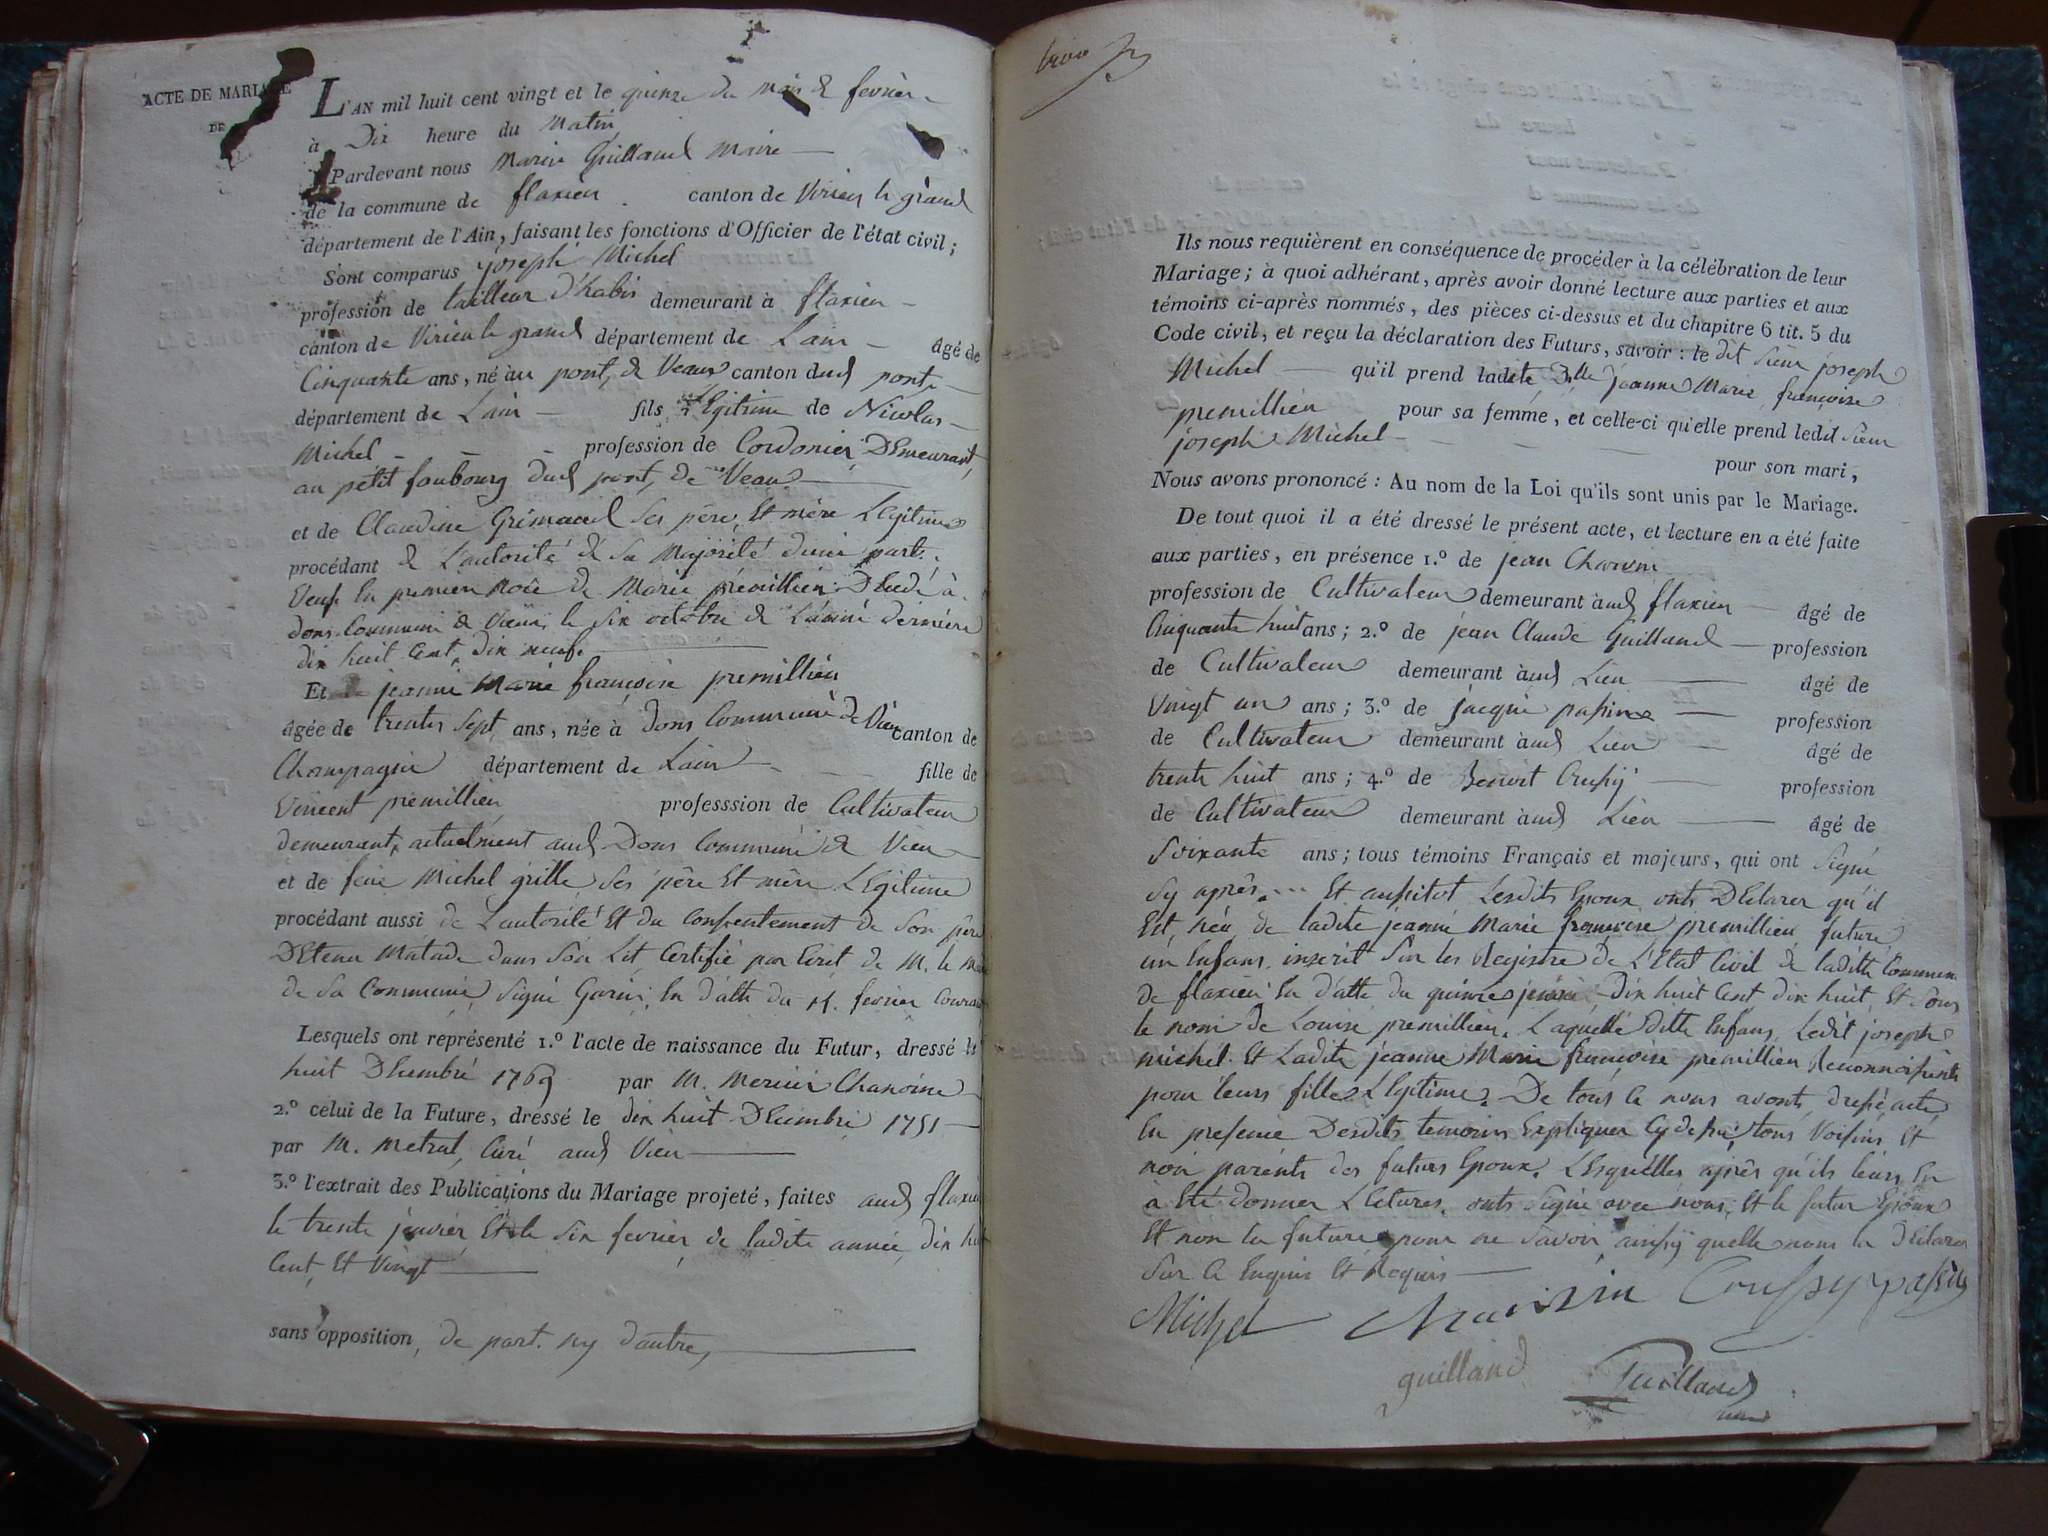 ACTE DE MARIAGE
DE
L'AN mil huit cent vingt et le quinze du mois de fevrier
à Dix heure du Matin
Pardevant nous Marin Guilland Maire
de la commune de flaxieu canton de Virieu le grand
département de l'Ain, faisant les fonctions d'Officier de l'état civil;
Sont comparus joseph Michel
profession de tailleur d'habis demeurant à flaxieu
canton de Virieu le grand département de Lain âgé de
Cinquante ans, né au pont de Veaux canton dud pont
département de Lain fils Légitime de Nicolas
Michel profession de Cordonier, Demeurant
au pétit faubourg dud pont, de Veaux
et de Claudine Grimaud Ses père Et mère LEgitime
procédant de L'autorité de Sa Majorité d'une part.
Veuf En premier Noce de Marie prémillieu Décédé à
dons Commune de Vieu, le Six octobre de L'année dernière
dix huit Cent, dix neuf.
Et jeanne Marie françoise premillieu
âgée de trente Sept ans, née à dons Commune de Vieu canton de
Champagne département de Lain fille de
Vincent premillieu professsion de Cultivateur
demeurant, actuelment aud Dons Commune de Vieu
et de feue Michel grille Ses père Et mère LEgitime
procédant aussi de L'autorité Et du Consentement de Son père
DEtenu Malade dans Son Lit Certifié par Ecrit de M. le
de Sa Commune, Signé Garin, En d'atte du fevrier Courant
Lesquels ont représenté 1.º l'acte de naissance du Futur, dressé le
huit DEcembre 1769 par M. Mercier Chanoine
2.º celui de la Future, dressé le dix huit DEcembre 1781
par M. Metral, Curé aud Vieu
3.º l'extrait des Publications du Mariage projeté, faites aud flaxieu
le trente janvier Et le Six fevrier de ladite année, dix huit
Cent, Et Vingt
sans opposition, de part. ny d'autre,
Ils nous requièrent en conséquence de procéder à la célébration de leur
Mariage; à quoi adhérant, après avoir donné lecture aux parties et aux
témoins ci-après nommés, des pièces ci-dessus et du chapitre 6 tit. 5 du
Code civil, et reçu la déclaration des Futurs, savoir: le dit Sieur joseph
Michel qu'il prend ladite Dlle jeanne Marie françoise
premillieu pour sa femme, et celle-ci qu'elle prend ledit Sieur
joseph Michel
pour son mari,
Nous avons prononcé: Au nom de la Loi qu'ils sont unis par le Mariage.
De tout quoi il a été dressé le présent acte, et lecture en a été faite
aux parties, en présence 1.º de jean
profession de Cultivateur demeurant àud flaxieu âgé de
Cinquante huit ans; 2.º de jean Claude Guilland profession
de Cultivateur demeurant àud Lieu âgé de
Vingt un ans; 3.º de jacque passin profession
de Cultivateur demeurant àud Lieu âgé de
trente huit ans; 4.º de Benoit Crussy profession
de Cultivateur demeurant àud Lieu âgé de
Soixante ans; tous témoins Français et majeurs, qui ont Signé
Cy après.... Et aussitot Lesdits Epoux onts DEclarer qu'il
Est Néé de ladite jeanne Marie françoise premillieu future
un Enfans, inscrit Sur les Registre de L'Etat Civil de laditte Commune
de flaxieu En d'atte du quinze dix huit Cent dix huit, Et Sous
le nom de Louise premillieu. Laquelle ditte Enfans, Ledit joseph
michel Et Ladite jeanne Marie françoise premillieu Reconnoissents
pour leurs fille LEgitime. De tous Ce nous avonts dressé acte,
En presence Desdits temoins Expliquer Cy dessus, tous Voisins Et
non parents des futurs Epoux. LEsquelles après qu'ils leurs En
à Eté donner LEctures, onts Signé avec nous, Et le futur Epoux
Et non la future pour ne Savoir ainssy quelle nous la DEclarer
Sur Ce Enquis Et Requis
Michel Crussy passin
guilland Guilland